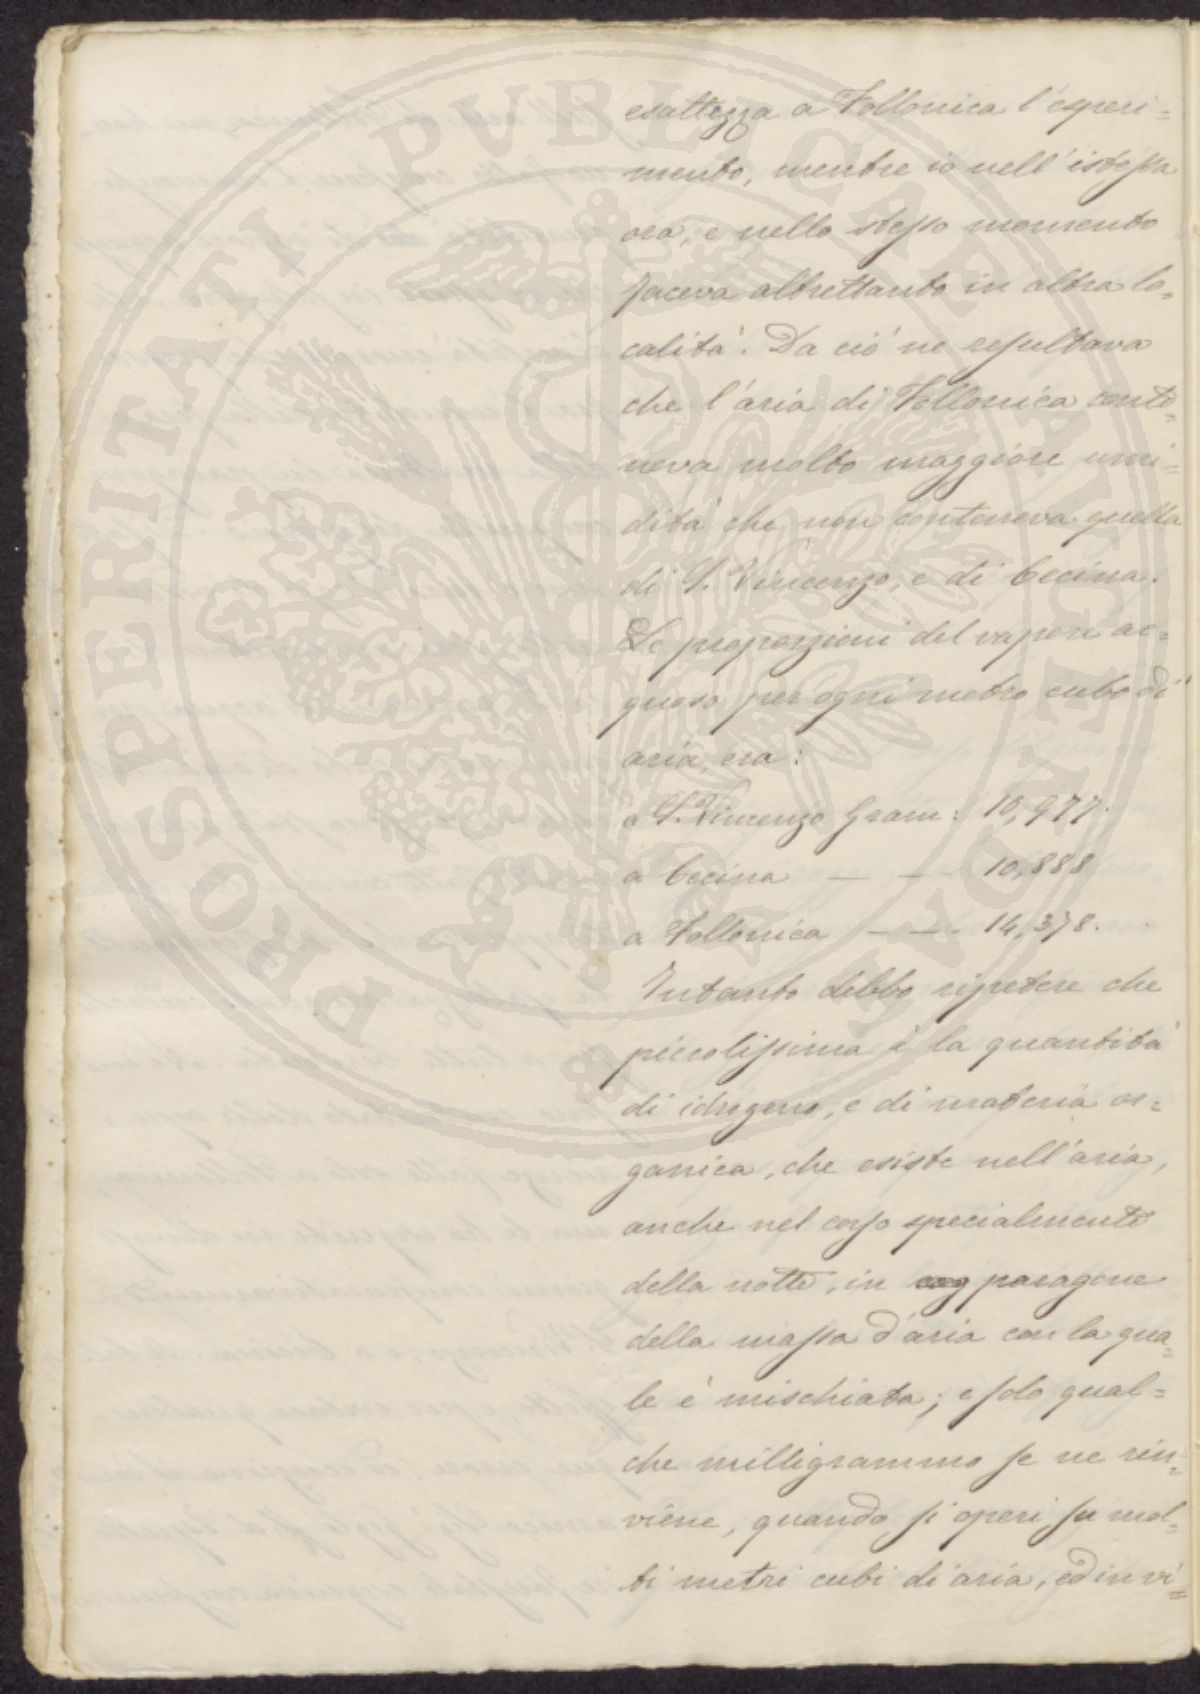 esattezza a Follonica l'esperi=
mento, mentre io nell'istessa
ora, e nello stesso momento
faceva altrettanto in altra lo=
calità. Da ciò ne resultava
che l'aria di Follonica conte=
neva molto maggiore umi=
dità che non conteneva quella
di S. Vincenzo, e di Cecina.
Le proporzioni del vapore ac=
quoso per ogni metro cubo di
aria, era:
a S. Vincenzo Gram: 10,977.
a Cecina — — 10,888
a Follonica — — 14,378.
Intanto debbo ripetere che
piccolissima è la quantità
di idrogeno, e di materia or=
ganica, che esiste nell'aria,
anche nel corso specialmente
della notte, in paragone
della massa d'aria con la qua=
le è mischiata; e solo qual=
che milligrammo se ne rin=
viene, quando si operi su mol=
ti metri cubi di aria, ed in vi=
PROSPERITATI PUBLICAE AUGENDAE